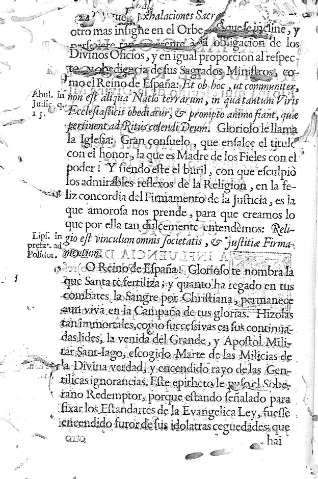 22 Exhalaciones Sacr
otro mas insigne en el Orbe que se incline, y
à la obligacion de los
Divinos Oficios, y en igual proporcion al respe-
to, y obediencia de sus Sagrados Ministros, co-
mo el Reino de España: Et ob hoc, ut communiter,
Abul. in
Judic. q.
15.
non est aliqua Natio terrarum, in qua tantum Viris
Ecclesiasticis obediatur, & prompto animo fiant, quæ
pertinent ad Ritus colendi Deum. Glorioso le llama
la Iglesia: Gran consuelo, que ensalce el titulo
con el honor, la que es Madre de los Fieles con el
poder! Y siendo este el buril, con que esculpiò
los admirables reflexos de la Religion, en la fe-
liz concordia del Firmamento de la Justicia, es la
que amorosa nos prende, para que creamos lo
que por ella tan dulcemente entendemos: Reli-
Lips. in
præfat. ad
Politic.
gio est vinculum omnis societatis, & justitiæ Firma-
mentum.
O Reino de España! Glorioso te nombra la
que Santa te fertiliza; y quanta ha regado en tus
combates la Sangre por Christiana, permanece
aun viva en la Campaña de tus glorias. Hizolas
tan immortales, como successivas en sus continua-
das lides, la venida del Grande, y Apostol Mili-
tar Sant-Iago, escogido Marte de las Milicias de
la Divina verdad, y encendido rayo de las Gen-
tilicas ignorancias. Este epitheto le puso el Sobe-
rano Redemptor, porque estando señalado para
fixar los Estandartes de la Evangelica Ley, fuesse
encendido furor de sus idolatras ceguedades, que
hai